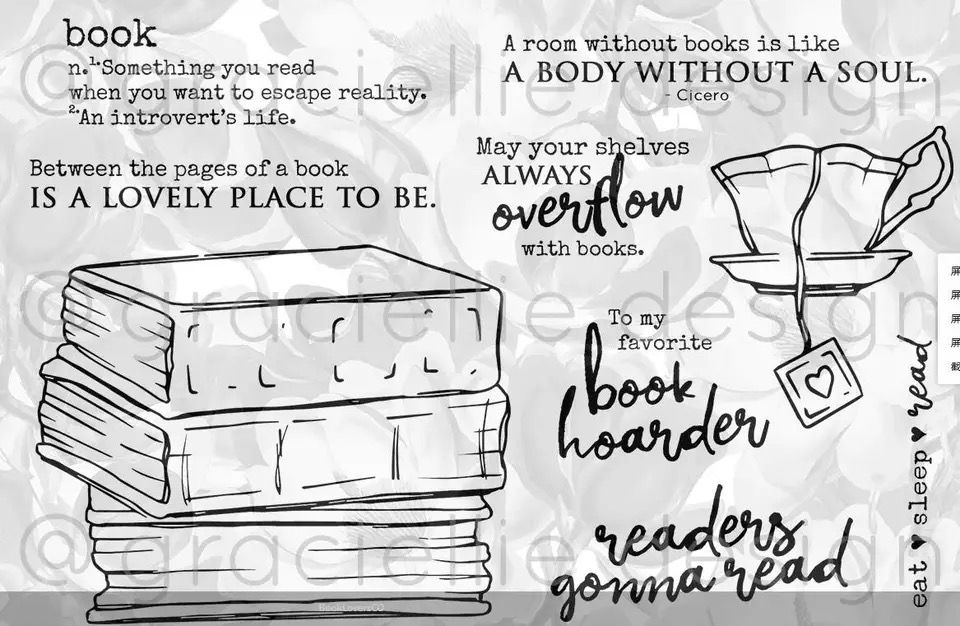 book
n.¹·Something you read
when you want to escape reality.
²·An introvert's life.
Between the pages of a book
IS A LOVELY PLACE TO BE.
A room without books is like
A BODY WITHOUT A SOUL.
- Cicero
May your shelves
ALWAYS
overflow
with books.
To my
favorite
book
hoarder
readers
gonna read
eat ♥ sleep ♥ read
@graciellie design
@graciellie design
@graciellie design
BookLoversCO
屏
屏
屏
屏
截